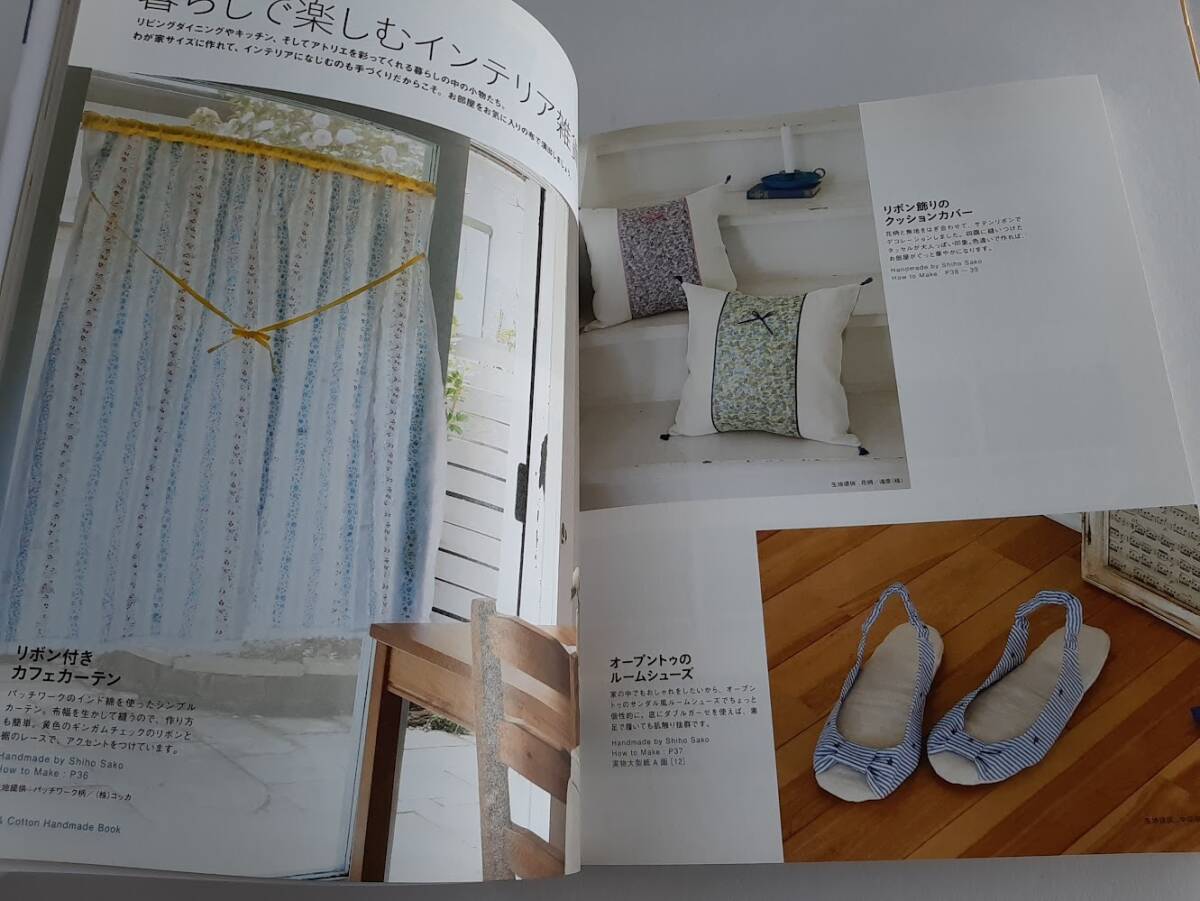 暮らしで楽しむインテリア雑
リビングダイニングやキッチン、そしてアトリエを彩ってくれる暮らしの中の小物たち、
わが家サイズに作れて、インテリアになじむのも手づくりだからこそ。お部屋をお気に入りの布で演出しましょう。
リボン付き
カフェカーテン
パッチワークのインド綿を使ったシンプル
カーテン。布幅を生かして縫うので、作り方
も簡単。黄色のギンガムチェックのリボンと
裾のレースで、アクセントをつけています。
Handmade by Shiho Sako
How to Make：P36
地提供 パッチワーク柄／(株)コッカ
& Cotton Handmade Book
リボン飾りの
クッションカバー
花柄と無地をはぎ合わせて、サテンリボンで
デコレーションしました。四隅に縫いつけた
タッセルが大人っぽい印象。色違いで作れば、
お部屋がぐっと華やかになります。
Handmade by Shiho Sako
How to Make P38〜39
生地提供 花柄／
オープントゥの
ルームシューズ
家の中でもおしゃれをしたいから、オープン
トゥのサンダル風ルームシューズでちょっと
個性的に。底にダブルガーゼを使えば、素
足で履いても肌触り抜群です。
Handmade by Shiho Sako
How to Make：P37
実物大型紙A面［12］
生地提供